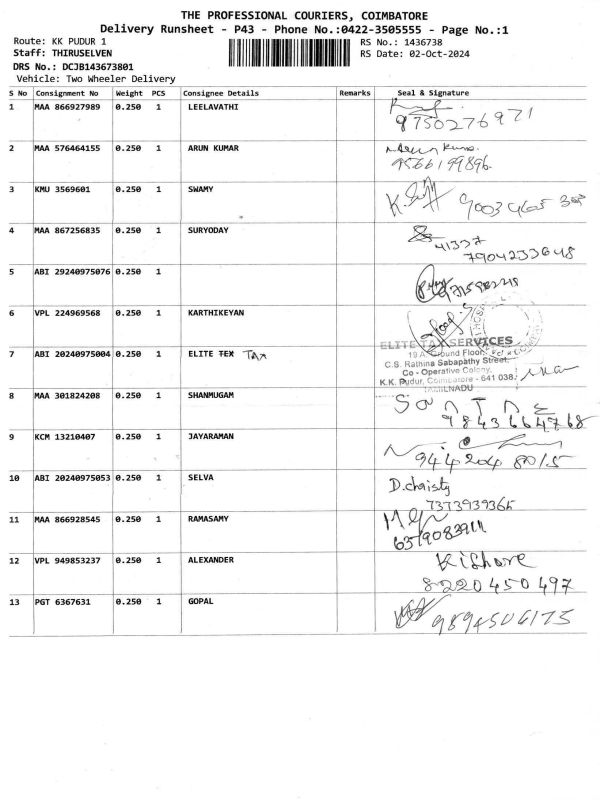 THE PROFESSIONAL COURIERS, COIMBATORE
Delivery Runsheet - P43 - Phone No.:0422-3505555 - Page No.:1
Route: KK PUDUR 1 RS No.: 1436738
Staff: THIRUSELVEN RS Date: 02-Oct-2024
DRS No.: DCJB143673801
Vehicle: Two Wheeler Delivery
S No Consignment No Weight PCS Consignee Details Remarks Seal & Signature
1 MAA 866927989 0.250 1 LEELAVATHI
9750276971
2 MAA 576464155 0.250 1 ARUN KUMAR
9566199896
3 KMU 3569601 0.250 1 SWAMY
4 MAA 867256835 0.250 1 SURYODAY
41337
7904233648
5 ABI 29240975076 0.250 1
6 VPL 224969568 0.250 1 KARTHIKEYAN
ELITE TAX SERVICES
7 ABI 20240975004 0.250 1 ELITE TEX TAX
19 A, Ground Floor,
C.S. Rathina Sabapathy Street,
Co - Operative Colony,
K.K. Pudur, Coimbatore - 641 038.
TAMILNADU
8 MAA 301824208 0.250 1 SHANMUGAM
9843664768
9 KCM 13210407 0.250 1 JAYARAMAN
944204 8015
10 ABI 20240975053 0.250 1 SELVA
D.christy
7373939365
11 MAA 866928545 0.250 1 RAMASAMY
12 VPL 949853237 0.250 1 ALEXANDER
Kishore
8220450497
13 PGT 6367631 0.250 1 GOPAL
9894506175